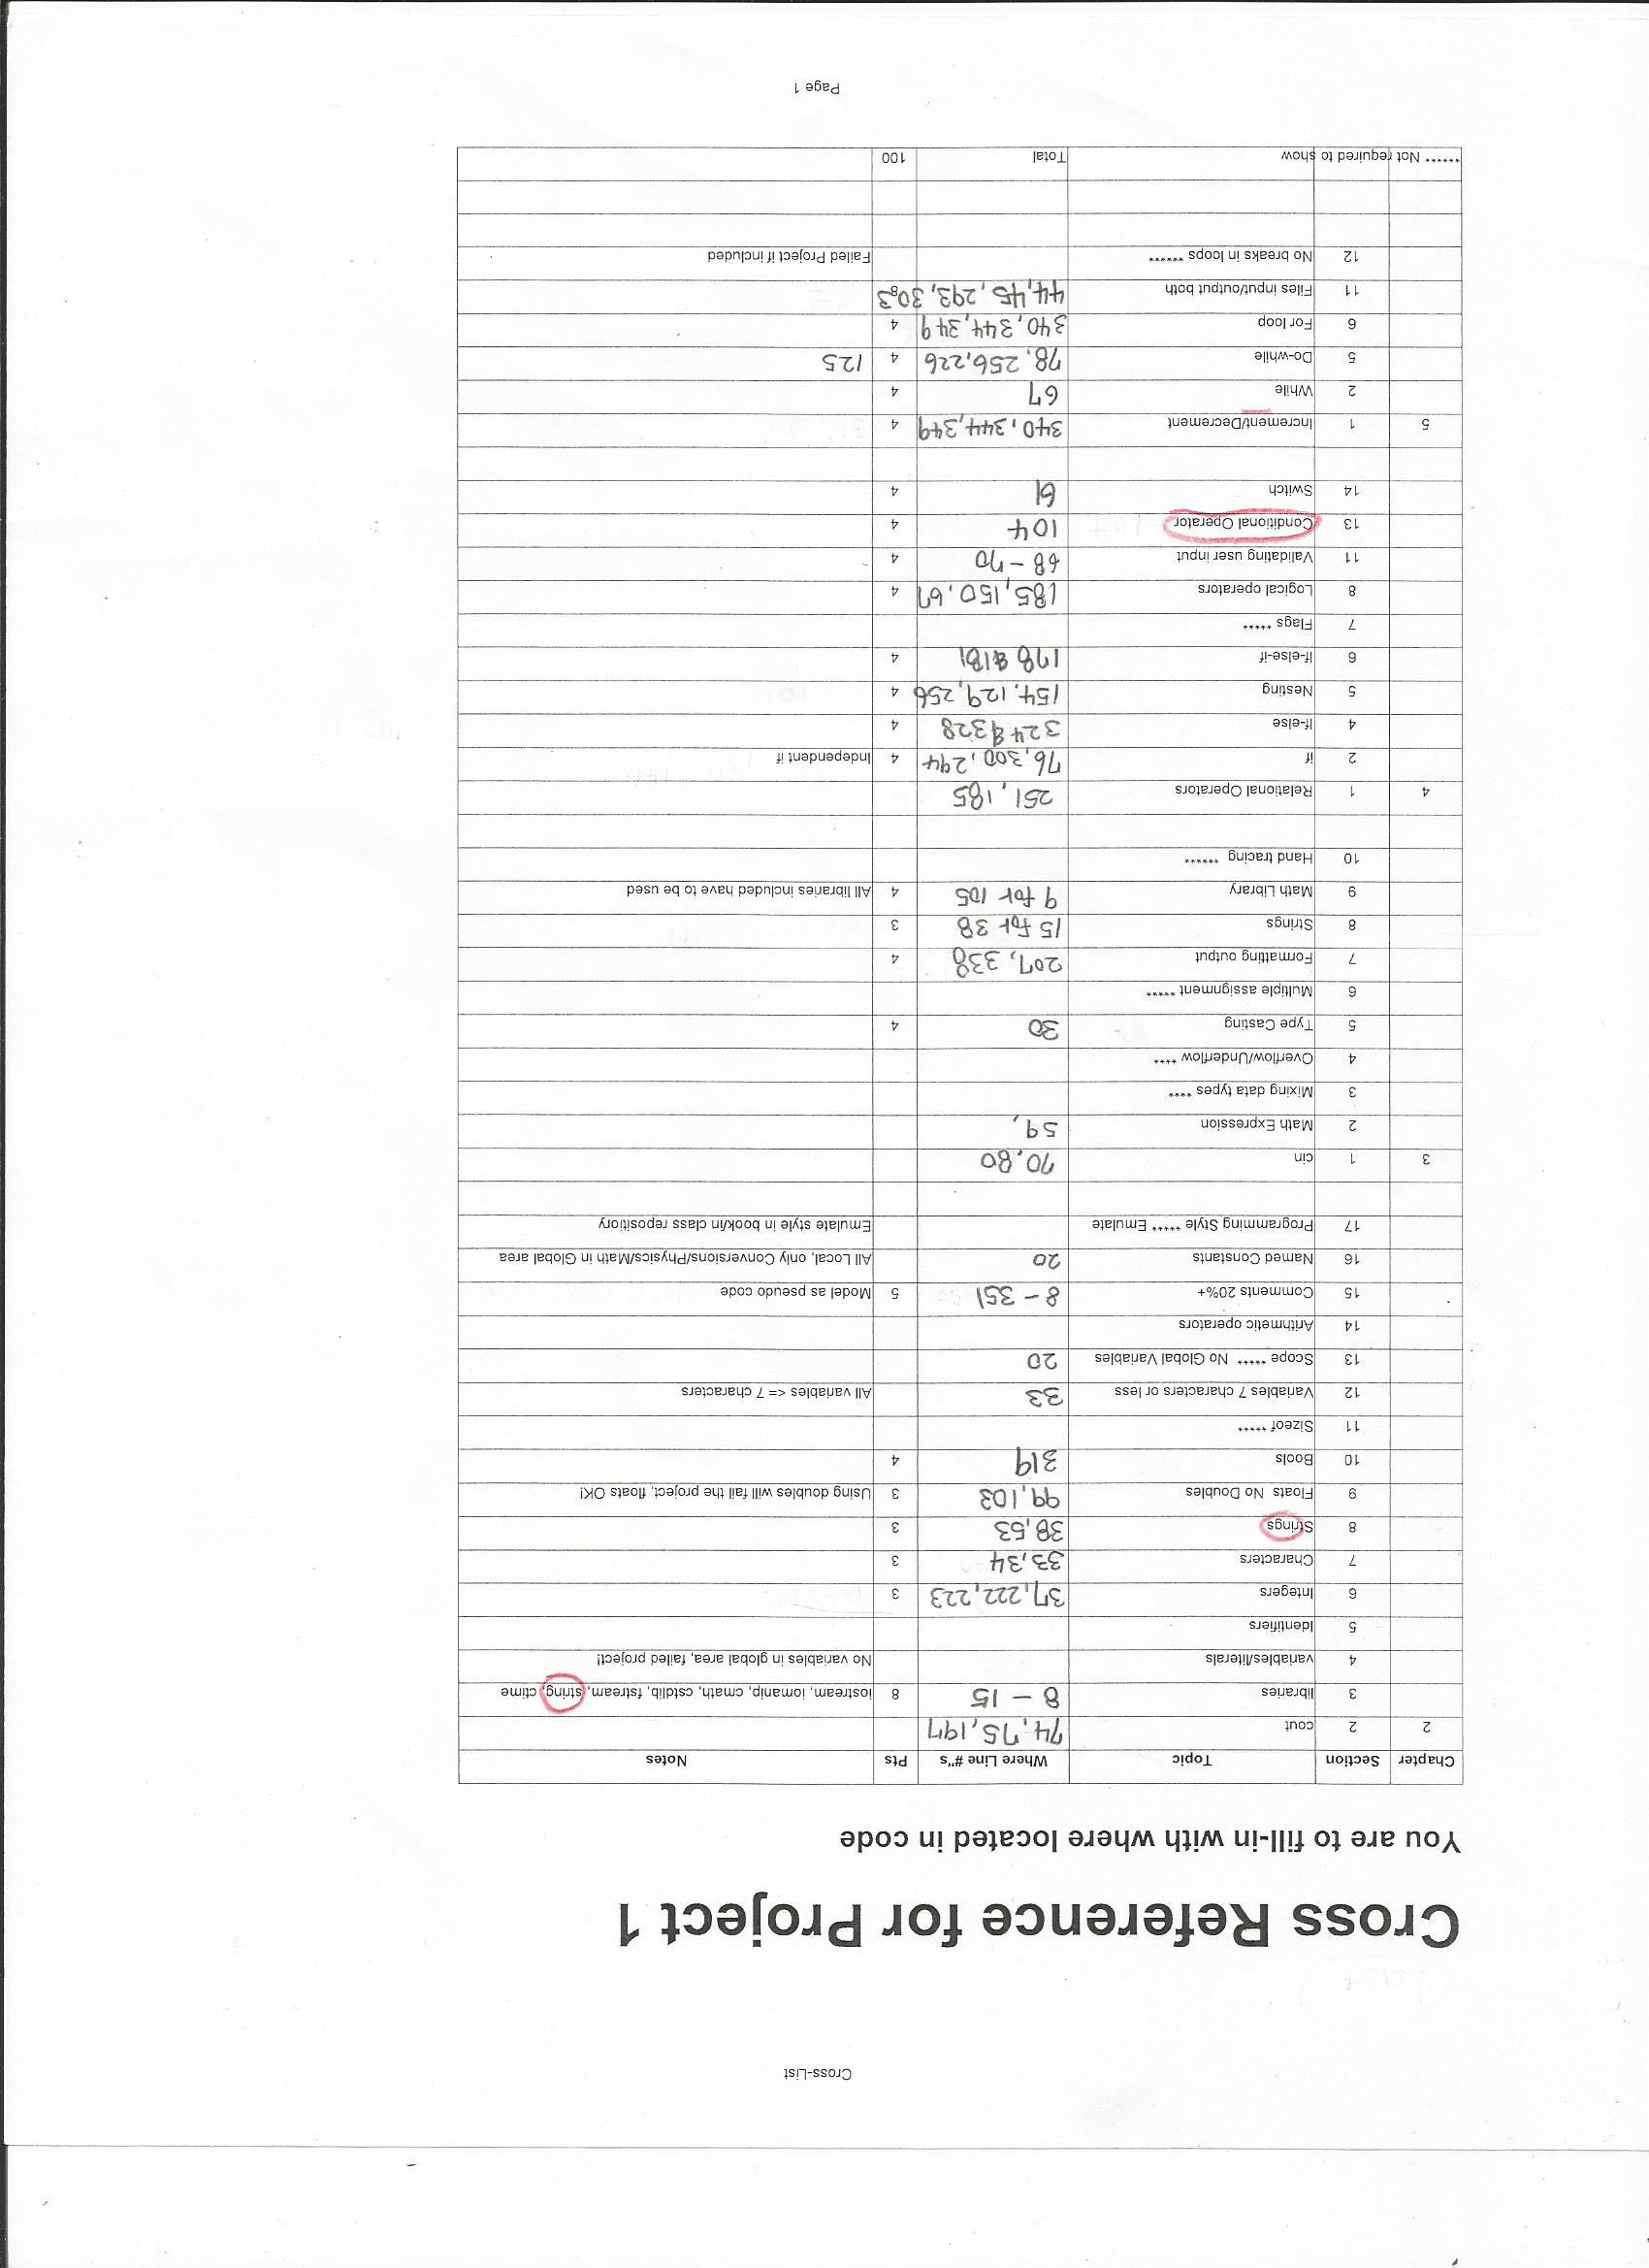 Cross-List
Cross Reference for Project 1
You are to fill-in with where located in code
Chapter Section Topic Where Line #"s Pts Notes
2 2 cout 74,75,197
3 libraries 8 - 15 8 iostream, iomanip, cmath, cstdlib, fstream, string, ctime
4 variables/literals No variables in global area, failed project!
5 Identifiers
6 Integers 37,222,223 3
7 Characters 33,34 3
8 Strings 38,53 3
9 Floats No Doubles 99,103 3 Using doubles will fail the project, floats OK!
10 Bools 319 4
11 Sizeof *****
12 Variables 7 characters or less 33 All variables <= 7 characters
13 Scope ***** No Global Variables 20
14 Arithmetic operators
15 Comments 20%+ 8 - 351 5 Model as pseudo code
16 Named Constants 20 All Local, only Conversions/Physics/Math in Global area
17 Programming Style ***** Emulate Emulate style in book/in class repositiory
3 1 cin 70,80
2 Math Expression 59,
3 Mixing data types ****
4 Overflow/Underflow ****
5 Type Casting 30 4
6 Multiple assignment *****
7 Formatting output 207, 338 4
8 Strings 15 for 38 3
9 Math Library 9 for 105 4 All libraries included have to be used
10 Hand tracing ******
4 1 Relational Operators 251,185
2 if 76,300,294 4 Independent if
4 If-else 324 & 328 4
5 Nesting 154,129,256 4
6 If-else-if 178 & 181 4
7 Flags *****
8 Logical operators 185,150,67 4
11 Validating user input 68 - 70 4
13 Conditional Operator 104 4
14 Switch 61 4
5 1 Increment/Decrement 340,344,349 4
2 While 67 4
5 Do-while 78,256,226 4 125
6 For loop 340,344,349 4
11 Files input/output both 44,45,293,303 8
12 No breaks in loops ****** Failed Project if included
****** Not required to show Total 100
Page 1